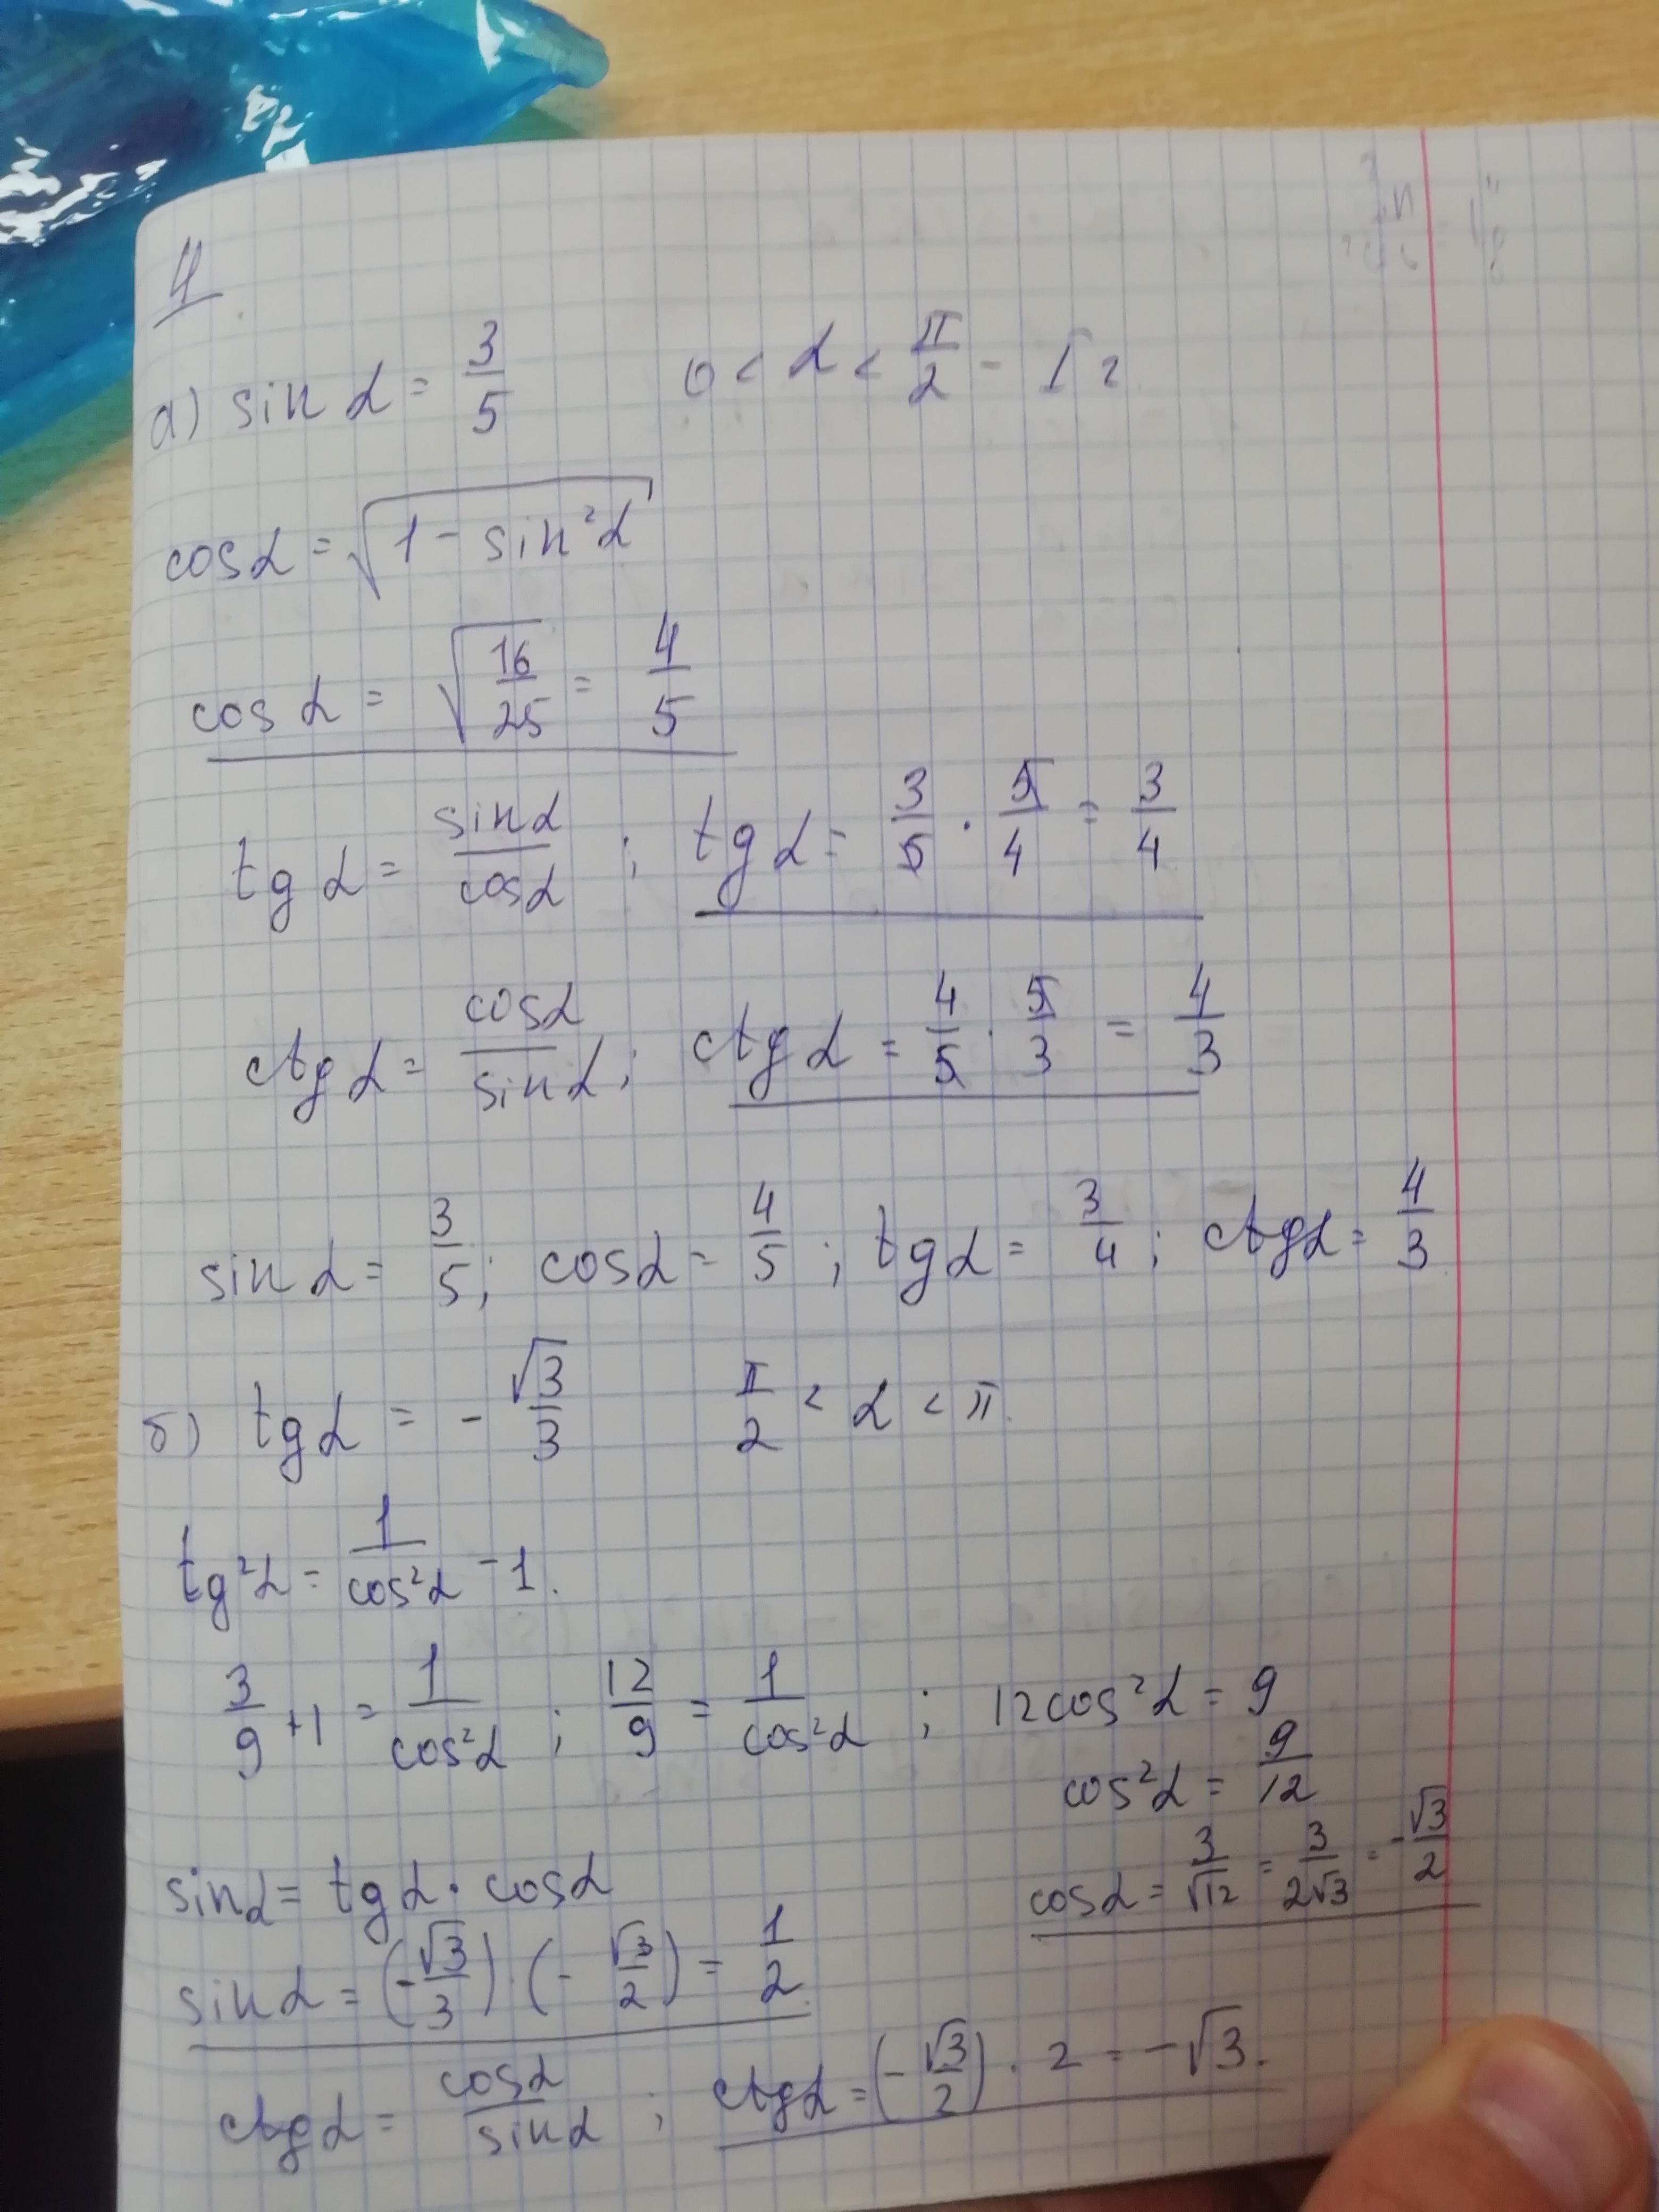 4.
а) sin α = 3/5   0 < α < π/2 - I г
cos α = √(1 - sin²α)
cos α = √(16/25) = 4/5
tg α = sin α/cos α ; tg α = 3/5 · 5/4 = 3/4
ctg α = cos α/sin α ; ctg α = 4/5 · 5/3 = 4/3
sin α = 3/5 ; cos α = 4/5 ; tg α = 3/4 ; ctg α = 4/3
б) tg α = - √3/3   π/2 < α < π.
tg²α = 1/cos²α - 1.
3/9 + 1 = 1/cos²α ; 12/9 = 1/cos²α ; 12cos²α = 9
cos²α = 9/12
cos α = 3/√12 = 3/2√3 = -√3/2
sin α = tg α · cos α
sin α = (-√3/3) · (- √3/2) = 1/2
ctg α = cos α/sin α ; ctg α = (-√3/2) · 2 = -√3.